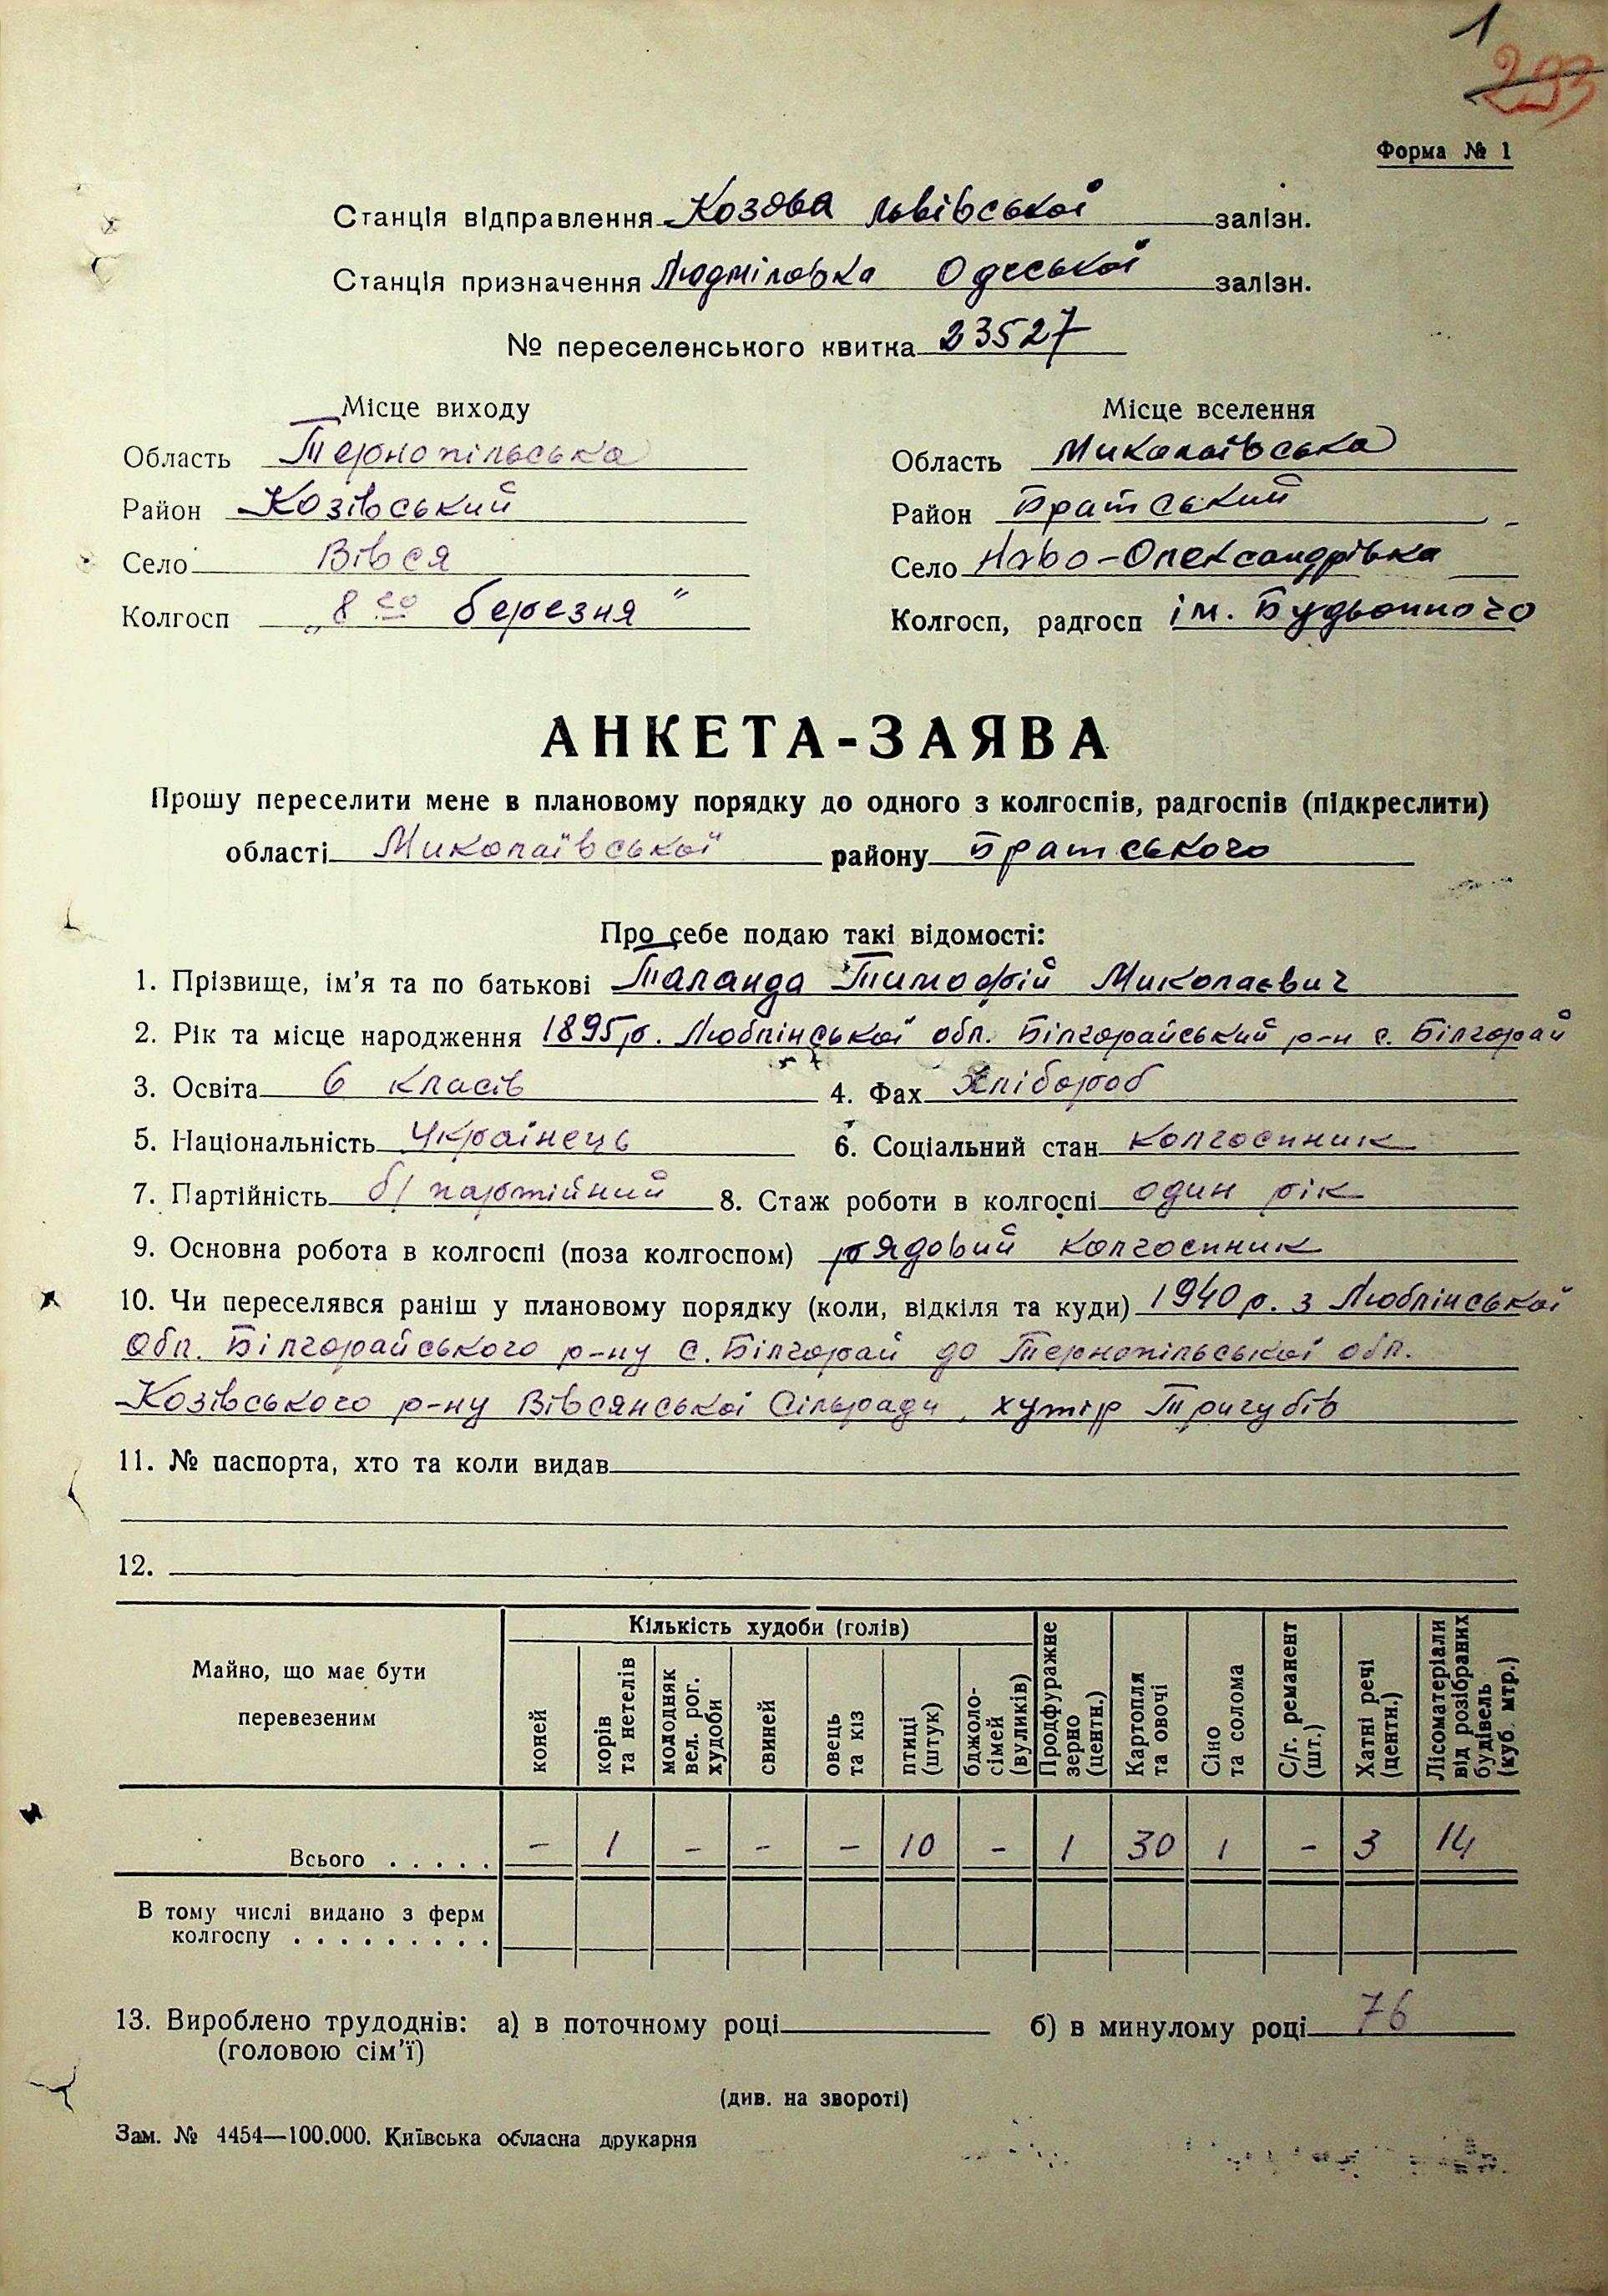 1
293
Форма № 1
Станція відправлення Козова Львівської залізн.
Станція призначення Людміловка Одеської залізн.
№ переселенського квитка 23527
Місце виходу Місце вселення
Область Тернопільська Область Миколаївська
Район Козівський Район Братський
Село Вівся Село Ново-Олександрівка
Колгосп „8го березня" Колгосп, радгосп ім. Будьонного
АНКЕТА-ЗАЯВА
Прошу переселити мене в плановому порядку до одного з колгоспів, радгоспів (підкреслити)
області Миколаївської району Братського
Про себе подаю такі відомості:
1. Прізвище, ім'я та по батькові Таланда Тимофій Миколаєвич
2. Рік та місце народження 1895р. Люблінської обл. Білгорайський р-н с. Білгорай
3. Освіта 6 класів 4. Фах Хлібороб
5. Національність Українець 6. Соціальний стан колгоспник
7. Партійність б/партійний 8. Стаж роботи в колгоспі один рік
9. Основна робота в колгоспі (поза колгоспом) рядовий колгоспник
10. Чи переселявся раніш у плановому порядку (коли, відкіля та куди) 1940 р. з Люблінської
Обл. Білгорайського р-ну с. Білгорай до Тернопільської обл.
Козівського р-ну Вівсянської Сільради, хутір Тригубів
11. № паспорта, хто та коли видав
12.
Майно, що має бути перевезеним
Кількість худоби (голів)
коней
корів та нетелів
молодняк вел. рог. худоби
свиней
овець та кіз
птиці (штук)
бджоло-сімей (вуликів)
Продфуражне зерно (центн.)
Картопля та овочі
Сіно та солома
С/г. реманент (шт.)
Хатні речі (центн.)
Лісоматеріали від розібраних будівель (куб. мтр.)
Всього . . . . . - 1 - - - 10 - 1 30 1 - 3 14
В тому числі видано з ферм
колгоспу . . . . . . . . .
13. Вироблено трудоднів: а) в поточному році б) в минулому році 76
(головою сім'ї)
(див. на звороті)
Зам. № 4454—100.000. Київська обласна друкарня